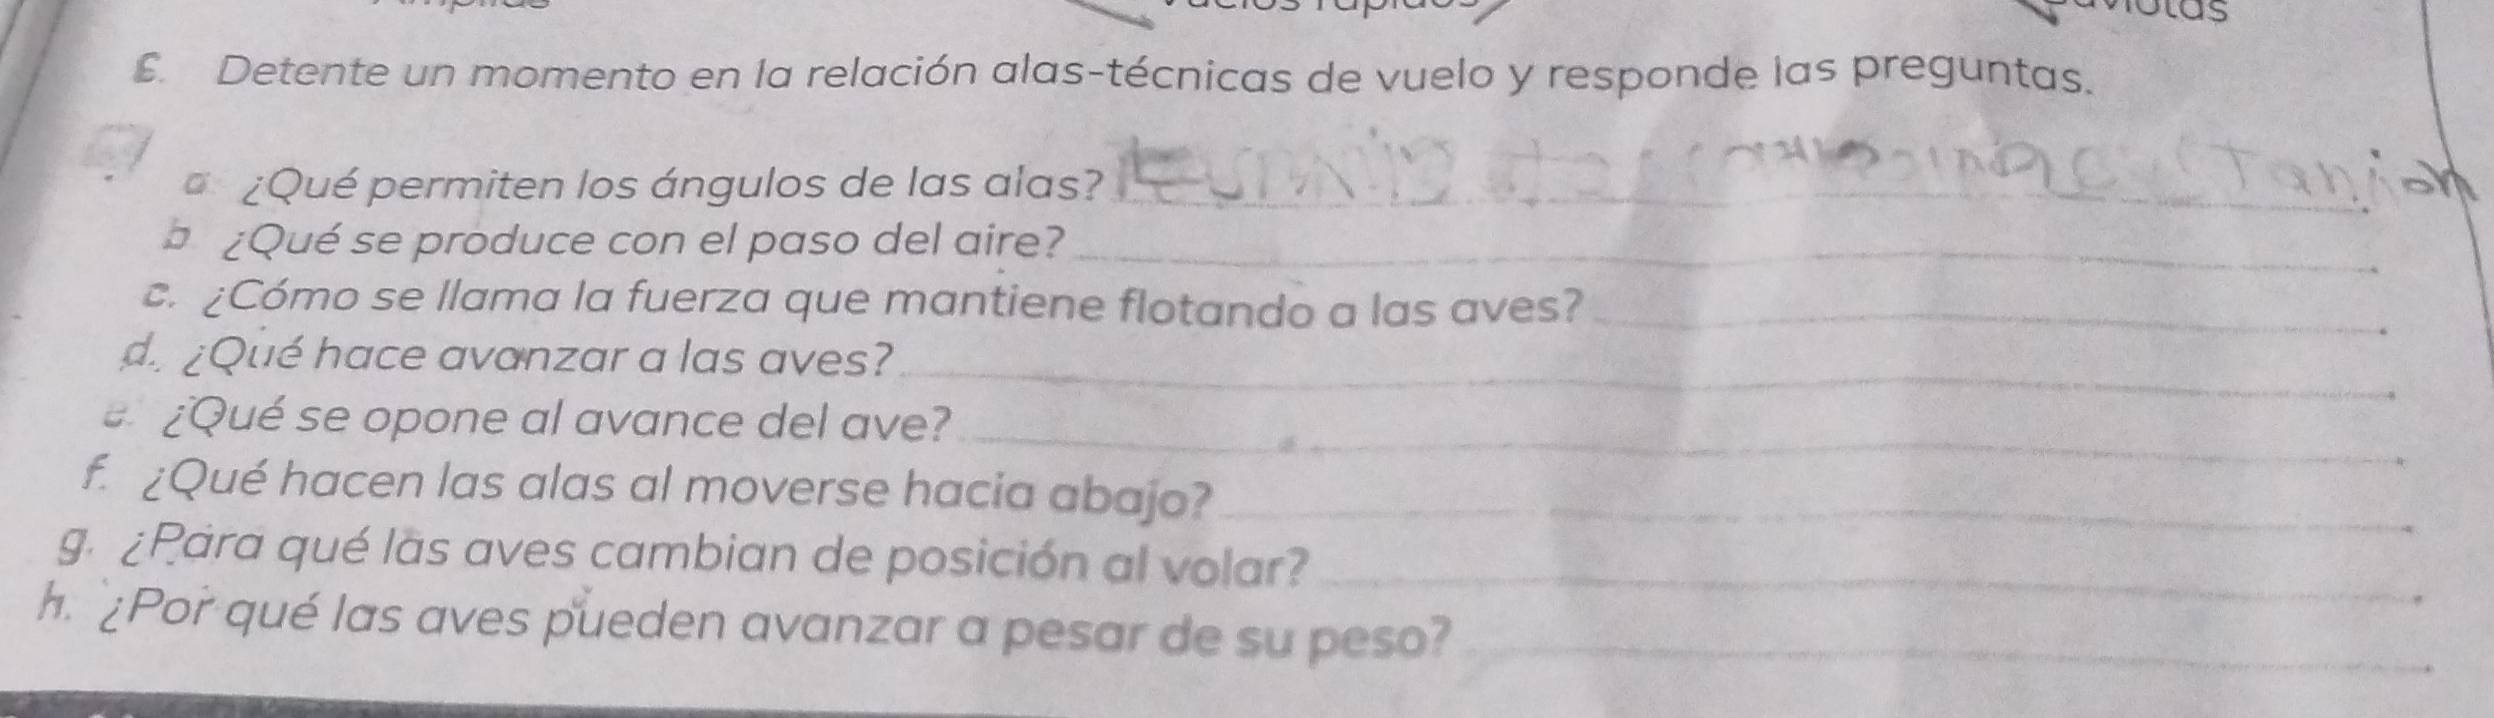 E. Detente un momento en la relación alas-técnicas de vuelo y responde las preguntas.
a ¿Qué permiten los ángulos de las alas?
b ¿Qué se produce con el paso del aire?
c. ¿Cómo se llama la fuerza que mantiene flotando a las aves?
d. ¿Qué hace avanzar a las aves?
e. ¿Qué se opone al avance del ave?
f. ¿Qué hacen las alas al moverse hacia abajo?
g. ¿Para qué las aves cambian de posición al volar?
h. ¿Por qué las aves pueden avanzar a pesar de su peso?